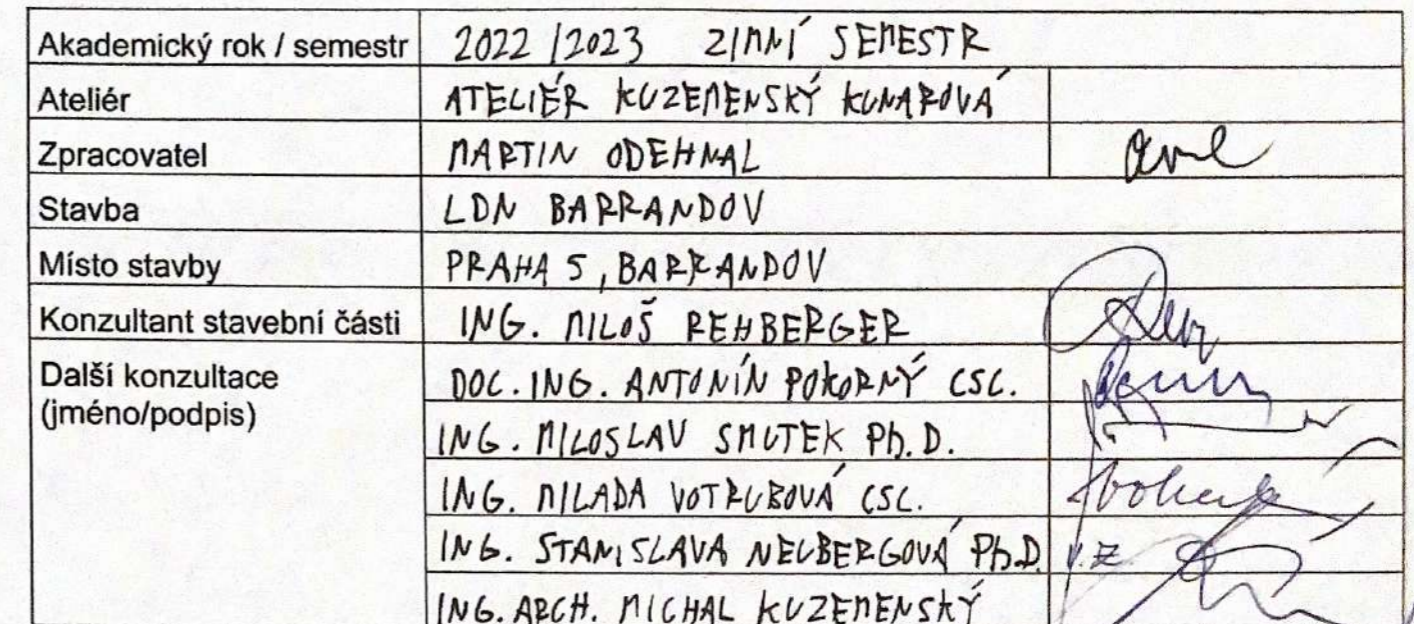 Akademický rok / semestr 2022/2023 ZIMNÍ SEMESTR
Ateliér ATELIÉR KUZEMENSKÝ KUNAROVÁ
Zpracovatel MARTIN ODEHNAL
Stavba LDN BARRANDOV
Místo stavby PRAHA 5, BARRANDOV
Konzultant stavební části ING. MILOŠ REHBERGER
Další konzultace DOC. ING. ANTONÍN POKORNÝ CSC.
(jméno/podpis)
ING. MILOSLAV SMUTEK Ph.D.
ING. MILADA VOTRUBOVÁ CSC.
ING. STANISLAVA NEUBERGOVÁ Ph.D. v.z.
ING. ARCH. MICHAL KUZEMENSKÝ